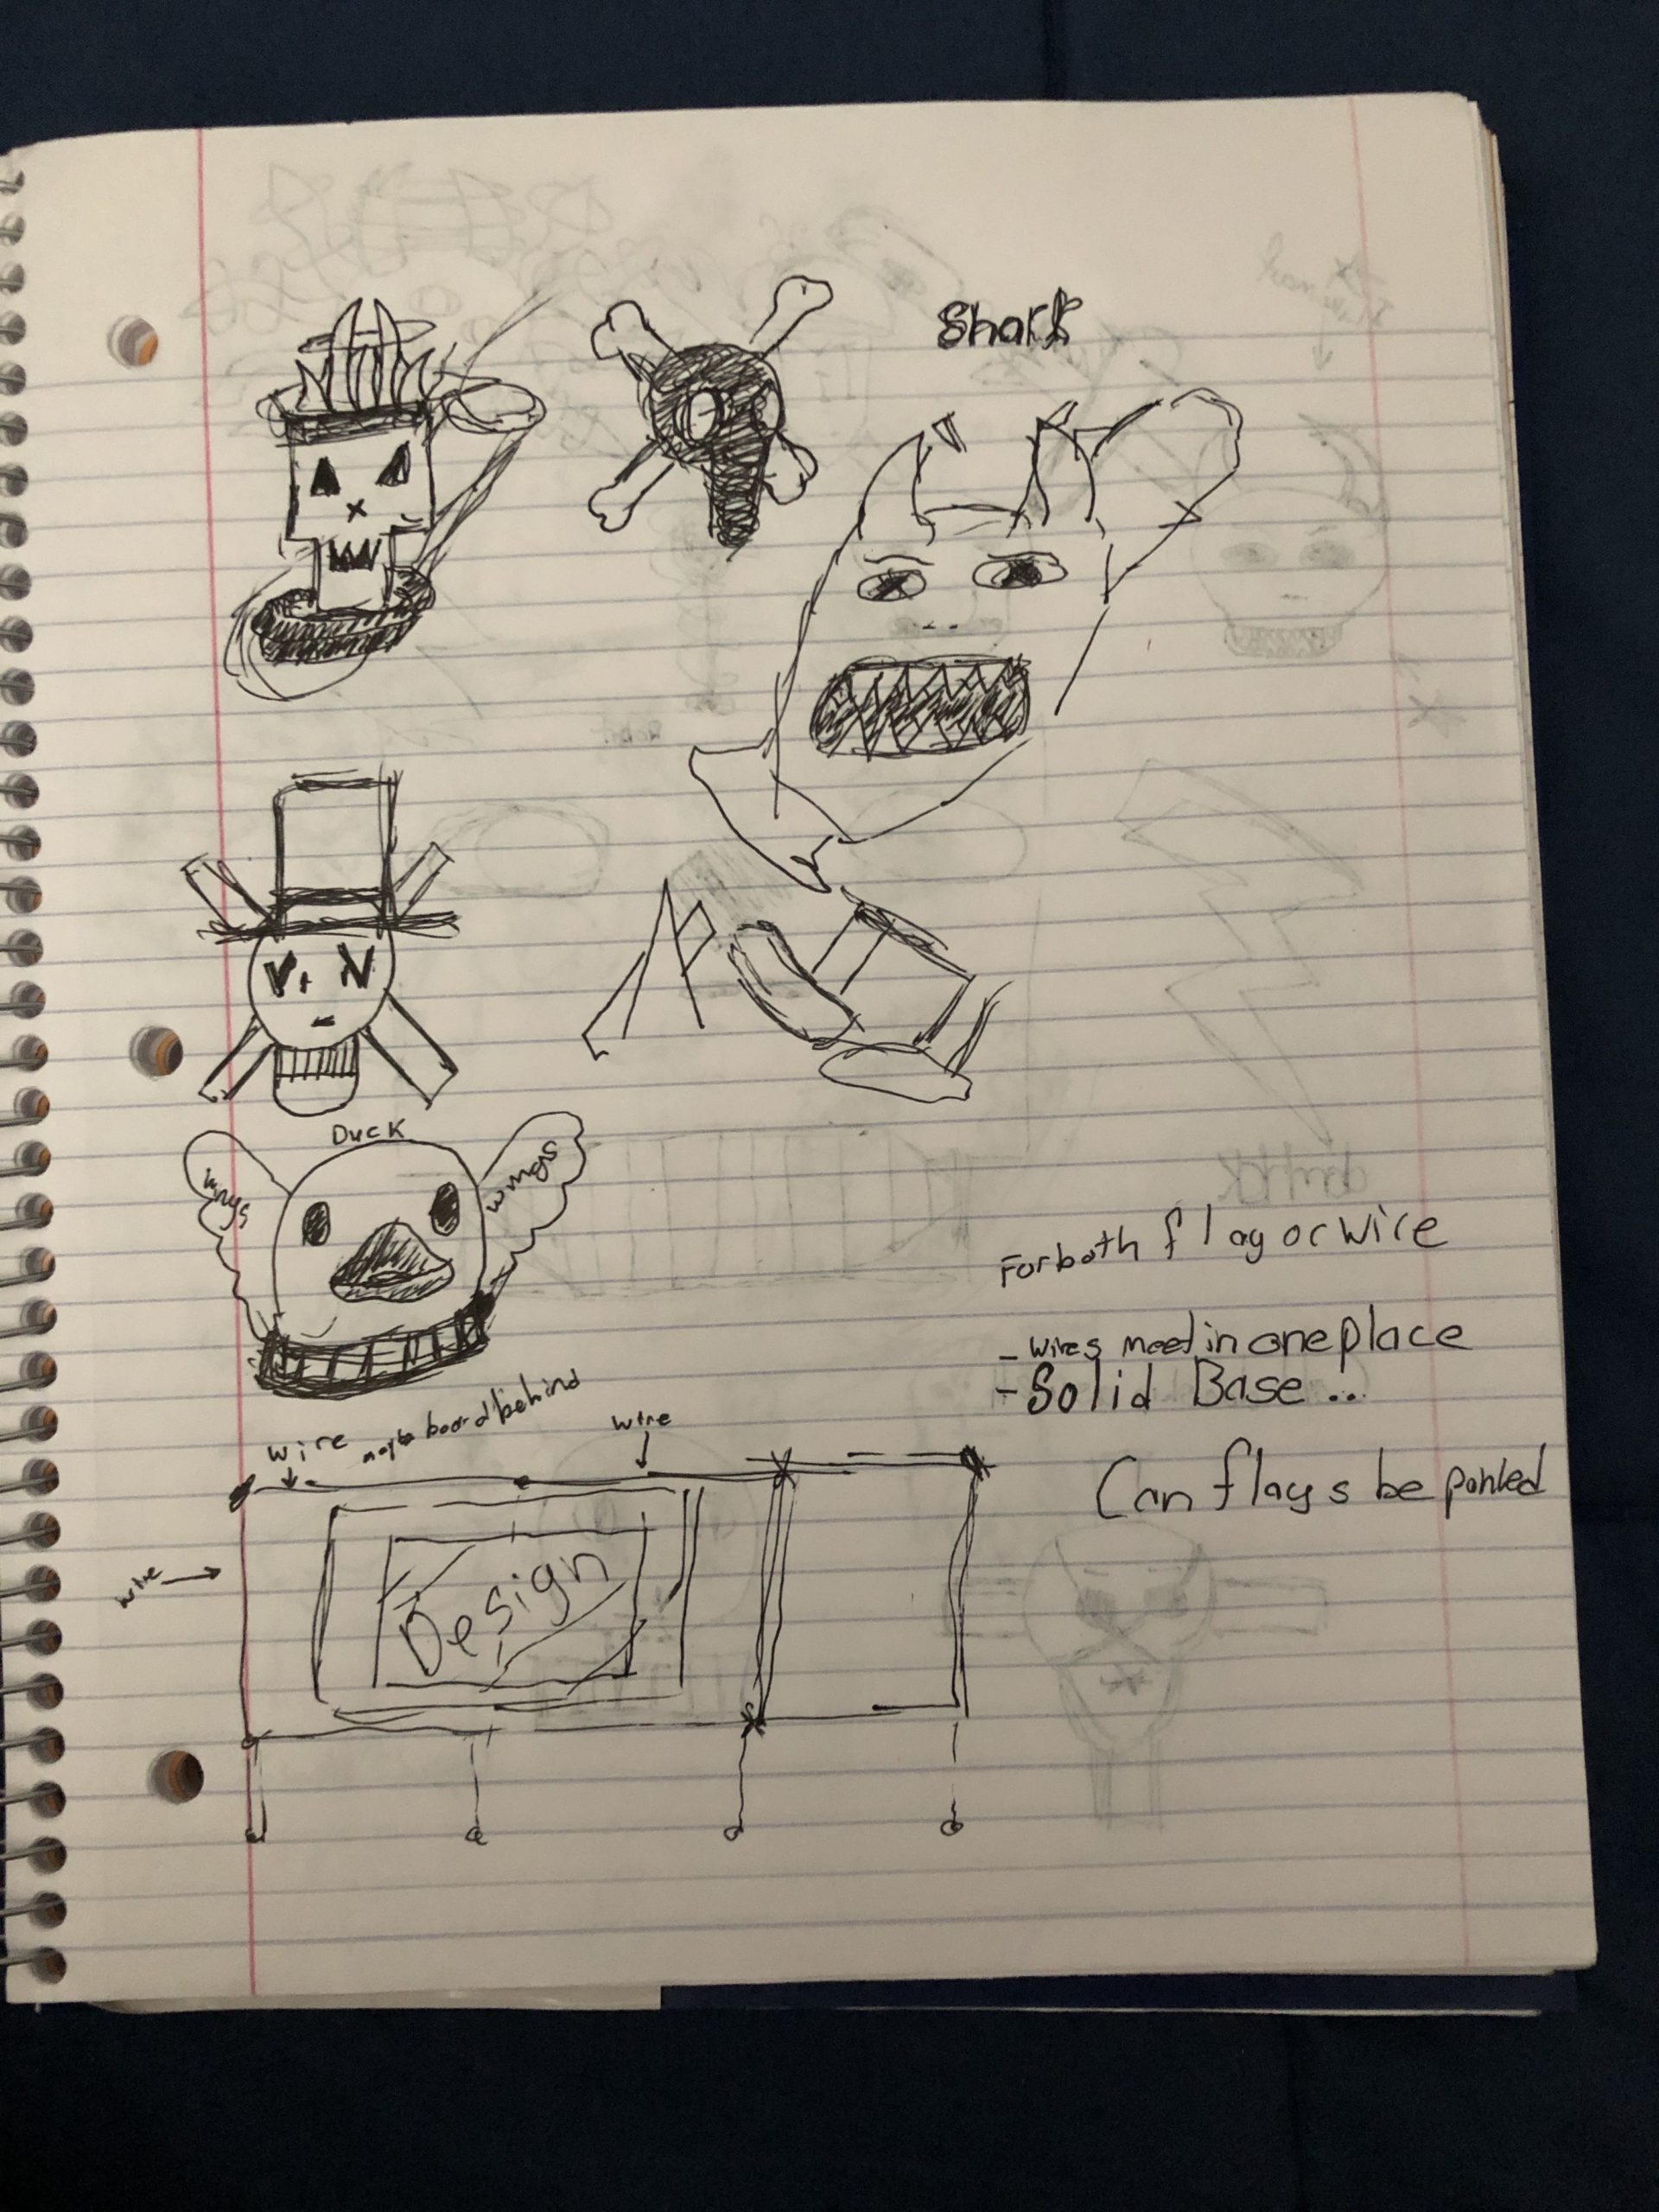 Shark
Duck
wings
wings
For both flag or wire
- wires meet in one place
- Solid Base ..
wire maybe board behind
wire
Can flags be
wire
Design